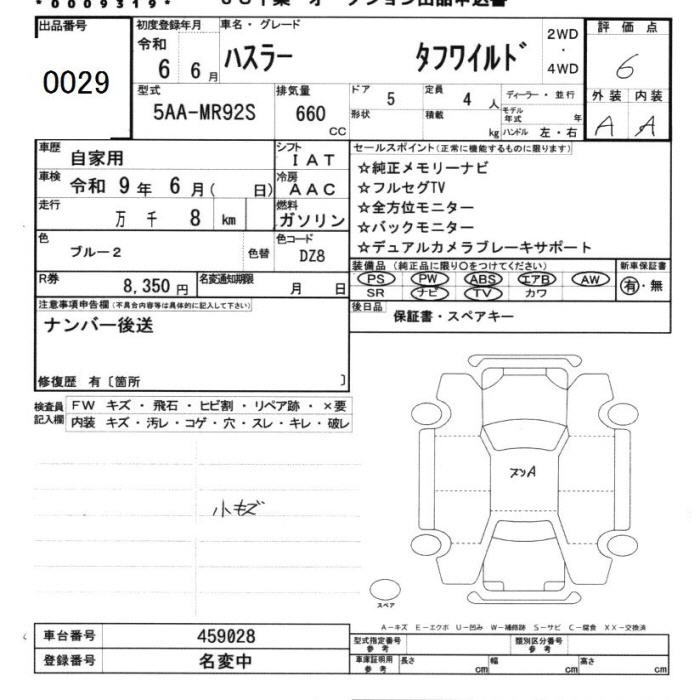 *0009319*
出品番号
0029
初度登録年月
令和
6 6月
車名・グレード
ハスラー タフワイルド
2WD
・
4WD
評価点
6
外装 内装
A A
型式
5AA-MR92S
排気量
660
cc
ドア
5
形状
定員
4人
積載
kg
ディーラー・並行
モデル
年式 年
ハンドル 左・右
車歴
自家用
シフト
IAT
車検
令和 9年 6月( 日)
冷房
AAC
走行
万 千 8 km
燃料
ガソリン
色
ブルー2
色替
色コード
DZ8
R券
8,350円
名変通知期限
月 日
セールスポイント(正常に機能するものに限ります)
☆純正メモリーナビ
☆フルセグTV
☆全方位モニター
☆バックモニター
☆デュアルカメラブレーキサポート
装備品(純正品に限り○をつけてください)
PS PW ABS エアB AW
SR ナビ TV カワ
新車保証書
有・無
後日品
保証書・スペアキー
注意事項申告欄(不具合内容等は具体的に記入して下さい)
ナンバー後送
修復歴 有〔箇所 〕
検査員
記入欄
FW キズ・飛石・ヒビ割・リペア跡・×要
内装 キズ・汚レ・コゲ・穴・スレ・キレ・破レ
小キズ
スペア
A-キズ E-エクボ U-凹み W-補修跡 S-サビ C-腐食 XX-交換済
車台番号
459028
登録番号
名変中
型式指定番号
参考
類別区分番号
参考
車庫証明用
参考
長さ cm
幅 cm
高さ cm